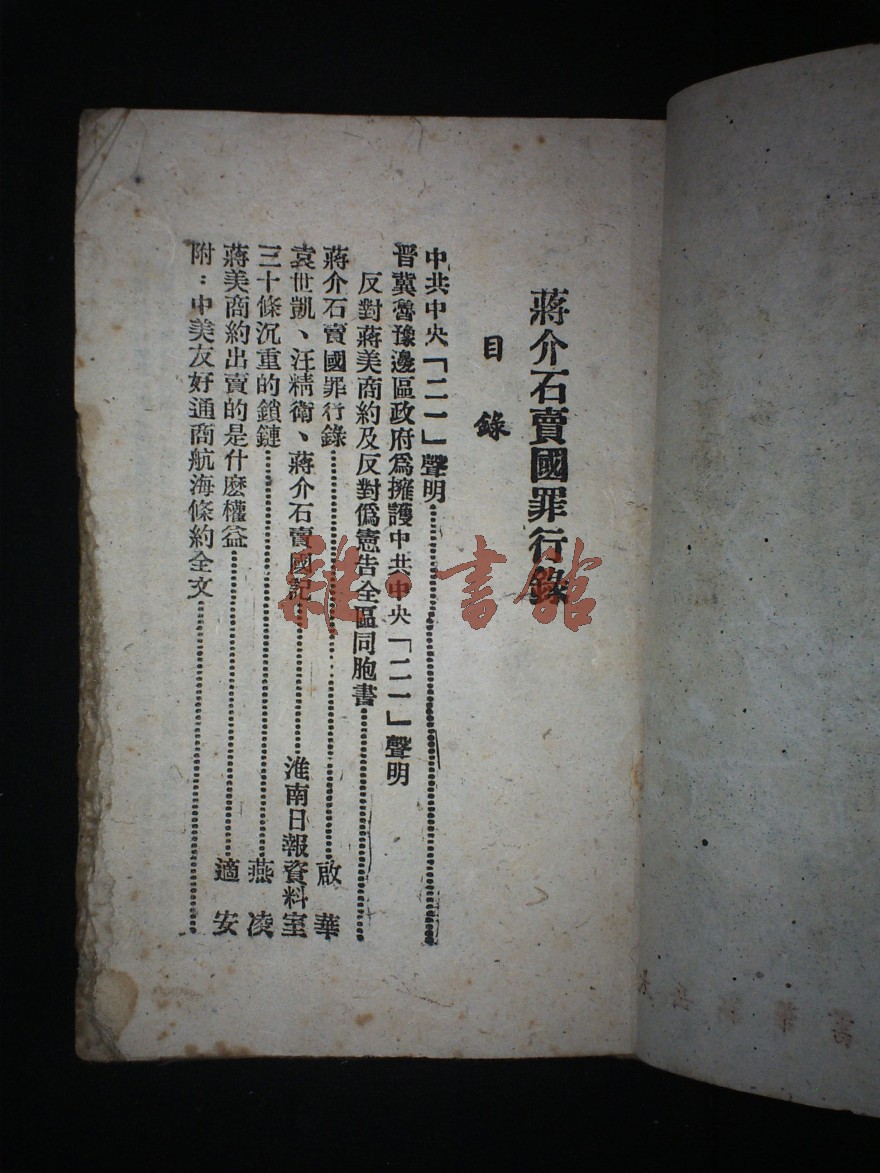 蔣介石賣國罪行錄
目錄
中共中央「二一」聲明
晋冀魯豫邊區政府爲擁護中共中央「二一」聲明
反對蔣美商約及反對僞憲告全區同胞書
蔣介石賣國罪行錄 啟華
袁世凱、汪精衛、蔣介石賣國記 淮南日報資料室
三十條沉重的鎖鏈 燕凌
蔣美商約出賣的是什麽權益 適安
附：中美友好通商航海條約全文
雜·書館